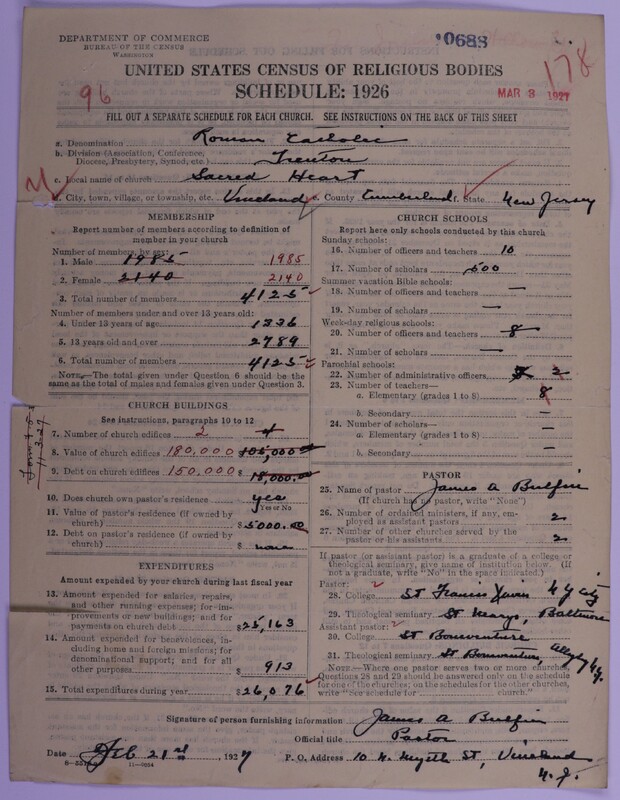 DEPARTMENT OF COMMERCE
BUREAU OF THE CENSUS
WASHINGTON
0688
178
96
UNITED STATES CENSUS OF RELIGIOUS BODIES
SCHEDULE: 1926
MAR 3 1927
FILL OUT A SEPARATE SCHEDULE FOR EACH CHURCH. SEE INSTRUCTIONS ON THE BACK OF THIS SHEET
a. Denomination Roman Catholic
b. Division (Association, Conference, Diocese, Presbytery, Synod, etc.) Trenton
c. Local name of church Sacred Heart
d. City, town, village, or township, etc. Vineland e. County Cumberland f. State New Jersey
MEMBERSHIP
Report number of members according to definition of
member in your church
Number of members, by sex:
1. Male 1985 1985
2. Female 2140 2140
3. Total number of members 4125
Number of members under and over 13 years old:
4. Under 13 years of age 1336
5. 13 years old and over 2789
6. Total number of members 4125
NOTE.—The total given under Question 6 should be the
same as the total of males and females given under Question 3.
CHURCH BUILDINGS
See instructions, paragraphs 10 to 12
7. Number of church edifices 2 4
8. Value of church edifices 180,000 105,000.00
9. Debt on church edifices 150,000 $18,000.00
10. Does church own pastor's residence yes
Yes or No
11. Value of pastor's residence (if owned by
church) $5000.00
12. Debt on pastor's residence (if owned by
church) $ none
EXPENDITURES
Amount expended by your church during last fiscal year
13. Amount expended for salaries, repairs,
and other running expenses; for improvements
or new buildings; and for
payments on church debt $25,163
14. Amount expended for benevolences, including
home and foreign missions; for
denominational support; and for all
other purposes $913
15. Total expenditures during year $26,076
CHURCH SCHOOLS
Report here only schools conducted by this church
Sunday schools:
16. Number of officers and teachers 10
17. Number of scholars 500
Summer vacation Bible schools:
18. Number of officers and teachers —
19. Number of scholars —
Week-day religious schools:
20. Number of officers and teachers 8
21. Number of scholars —
Parochial schools:
22. Number of administrative officers 2
23. Number of teachers—
a. Elementary (grades 1 to 8) 8
b. Secondary —
24. Number of scholars—
a. Elementary (grades 1 to 8) —
b. Secondary —
PASTOR
25. Name of pastor James A Bulfin
(If church has no pastor, write "None")
26. Number of ordained ministers, if any, employed
as assistant pastors 2
27. Number of other churches served by the
pastor or his assistants 2
If pastor (or assistant pastor) is a graduate of a college or
theological seminary, give name of institution below. (If
not a graduate, write "No" in the space indicated.)
Pastor:
28. College St Francis Xavier N Y City
29. Theological seminary St Marys, Baltimore
Assistant pastor:
30. College St Bonaventure
31. Theological seminary St Bonaventure, N.Y.
NOTE.—Where one pastor serves two or more churches,
Questions 28 and 29 should be answered only on the schedule
for one of the churches; on the schedules for the other churches,
write "See schedule for church."
Signature of person furnishing information James A Bulfin
Official title Pastor
Date Feb 21st, 1927 P. O. Address 10 N. Myrtle St, Vineland
N. J.